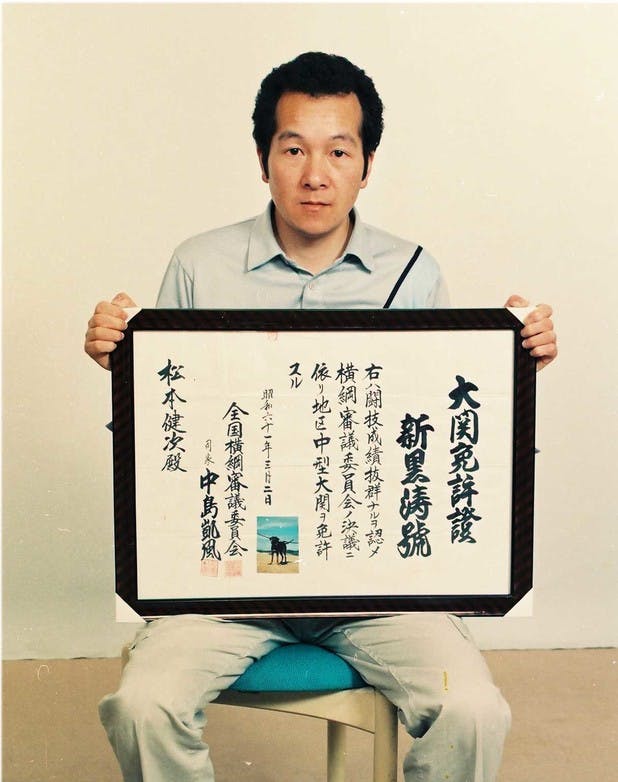 大関免許證
新黒濤號
右ハ闘技成績抜群ナルヲ認メ
横綱審議委員会ノ決議ニ
依リ地区中型大関ヲ免許
スル
昭和六十一年三月二日
全国横綱審議委員会
司家 中島凱風
松本健次殿